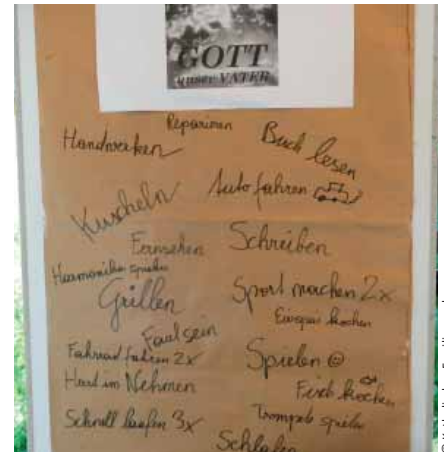 GOTT
unser VATER
Reparieren
Handwerken
Buch lesen
Auto fahren
Kuscheln
Fernsehen
Schreiben
Harmonika spielen
Grillen
Sport machen 2x
Faul sein
Fahrrad fahren 2x
Spielen
Hart im Nehmen
Fisch kochen
Schnell laufen 3x
Trompete spielen
Schlafen